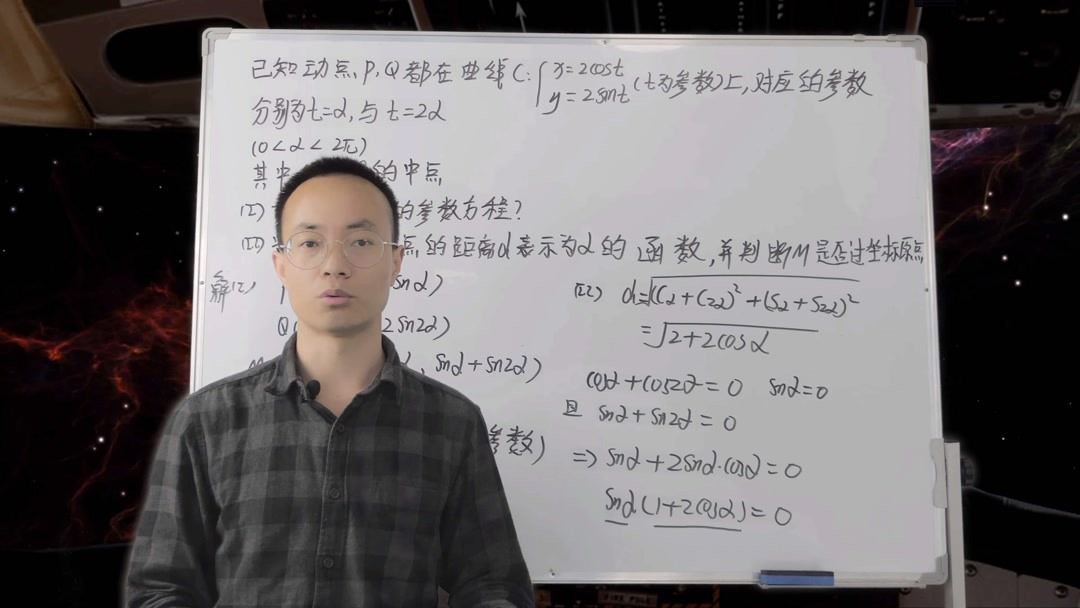 已知动点P,Q都在曲线C:{x=2cost
y=2sint (t为参数)上,对应的参数
分别为t=α,与t=2α
(0<α<2π)
其中 的中点
(I) 的参数方程?
(II) 点的距离d表示为α的函数,并判断M是否过坐标原点
解(I) sinα)
Q( 2sin2α)
, sinα+sin2α)
参数)
(II) d=√(Cα+C2α)²+(Sα+S2α)²
=√2+2cosα
cosα+cos2α=0 sinα=0
且 sinα+sin2α=0
=>sinα+2sinα·cosα=0
sinα(1+2cosα)=0